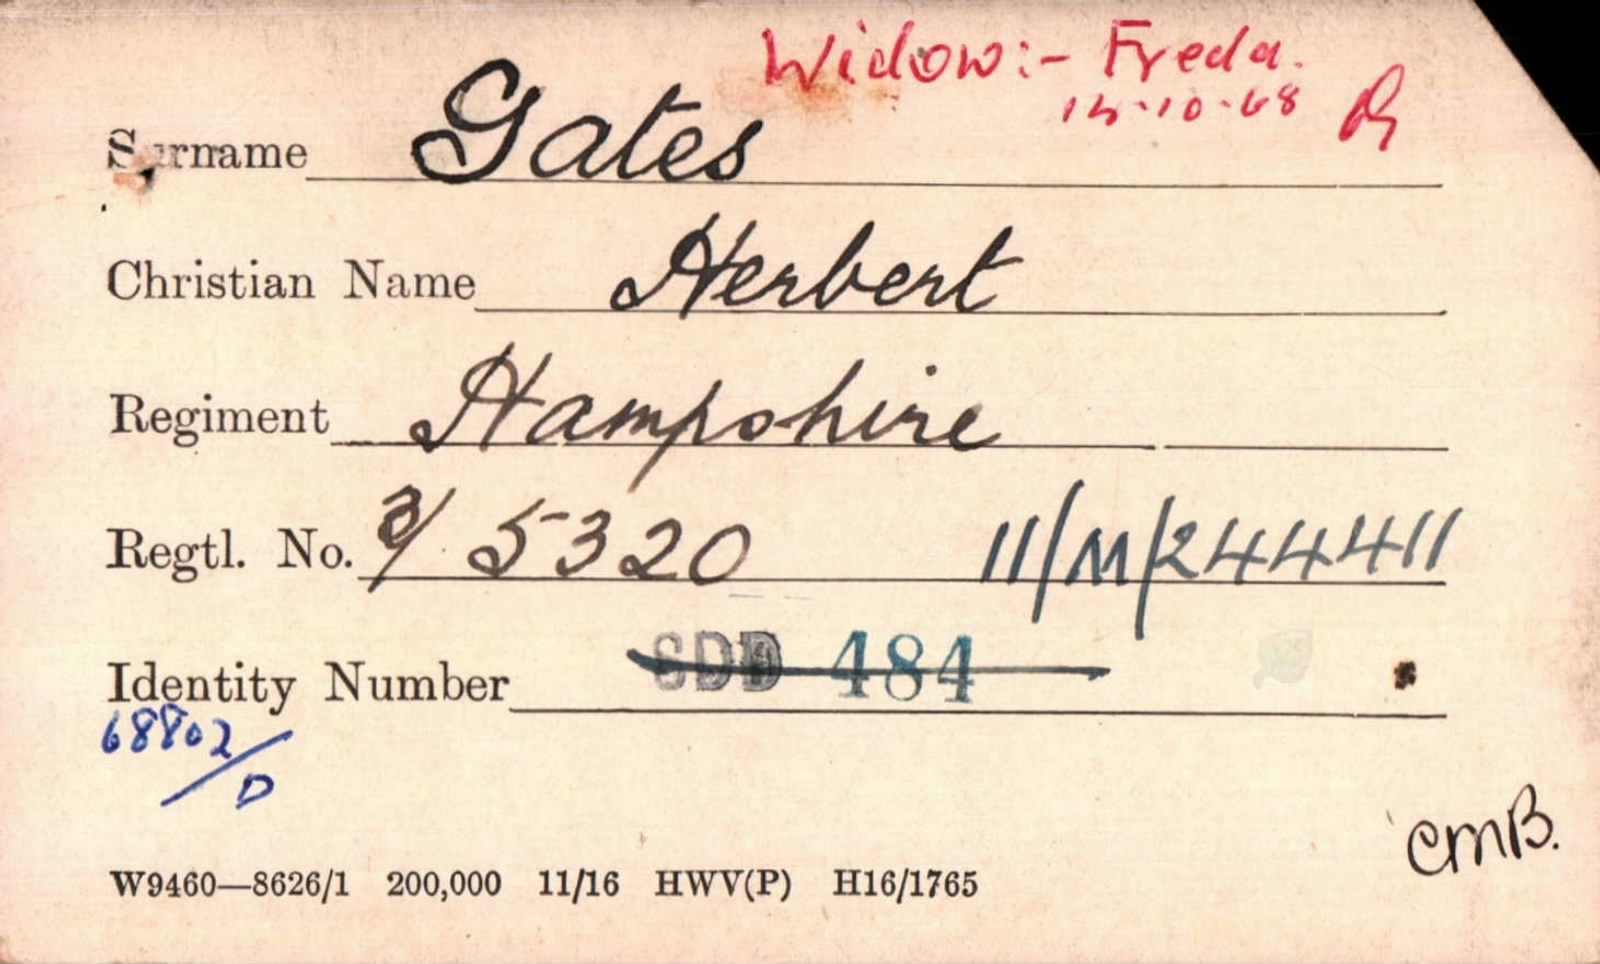 Widow:- Freda.
Surname Gates
Christian Name Herbert
Regiment Hampshire
Regtl. No. 3/5320 11/M/244411
Identity Number SDD 484
68802/D
CMB.
W9460—8626/1 200,000 11/16 HWV(P) H16/1765